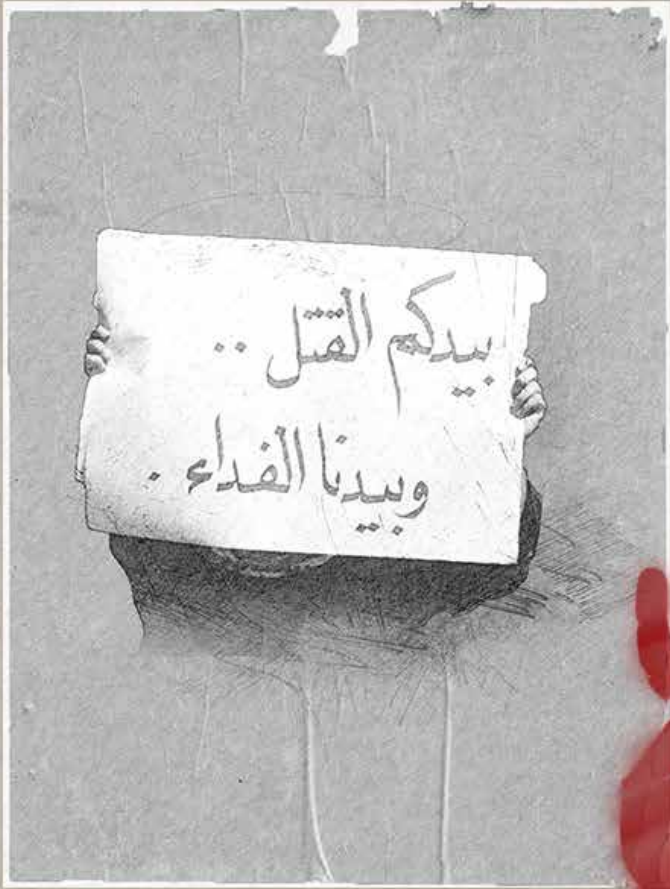 بيدكم القتل ..
وبيدنا الفداء .